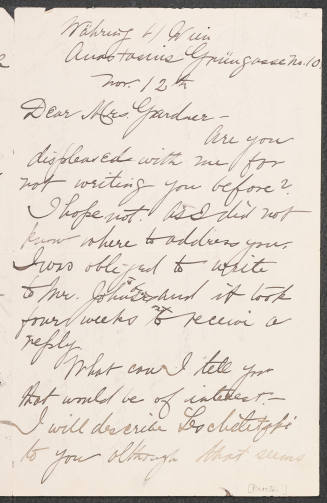 Währing b/ Wien
Anastasius Grüngasse No. 10.
Nov. 12th
Dear Mrs. Gardner –
Are you
displeased with me for
not writing you before?
I hope not. As I did not
know where to address you.
I was obliged to write
to Mr. Johns and it took
four weeks to receive a
reply.
What can I tell you
that would be of interest. –
I will describe Leschetitzki
to you although that seems